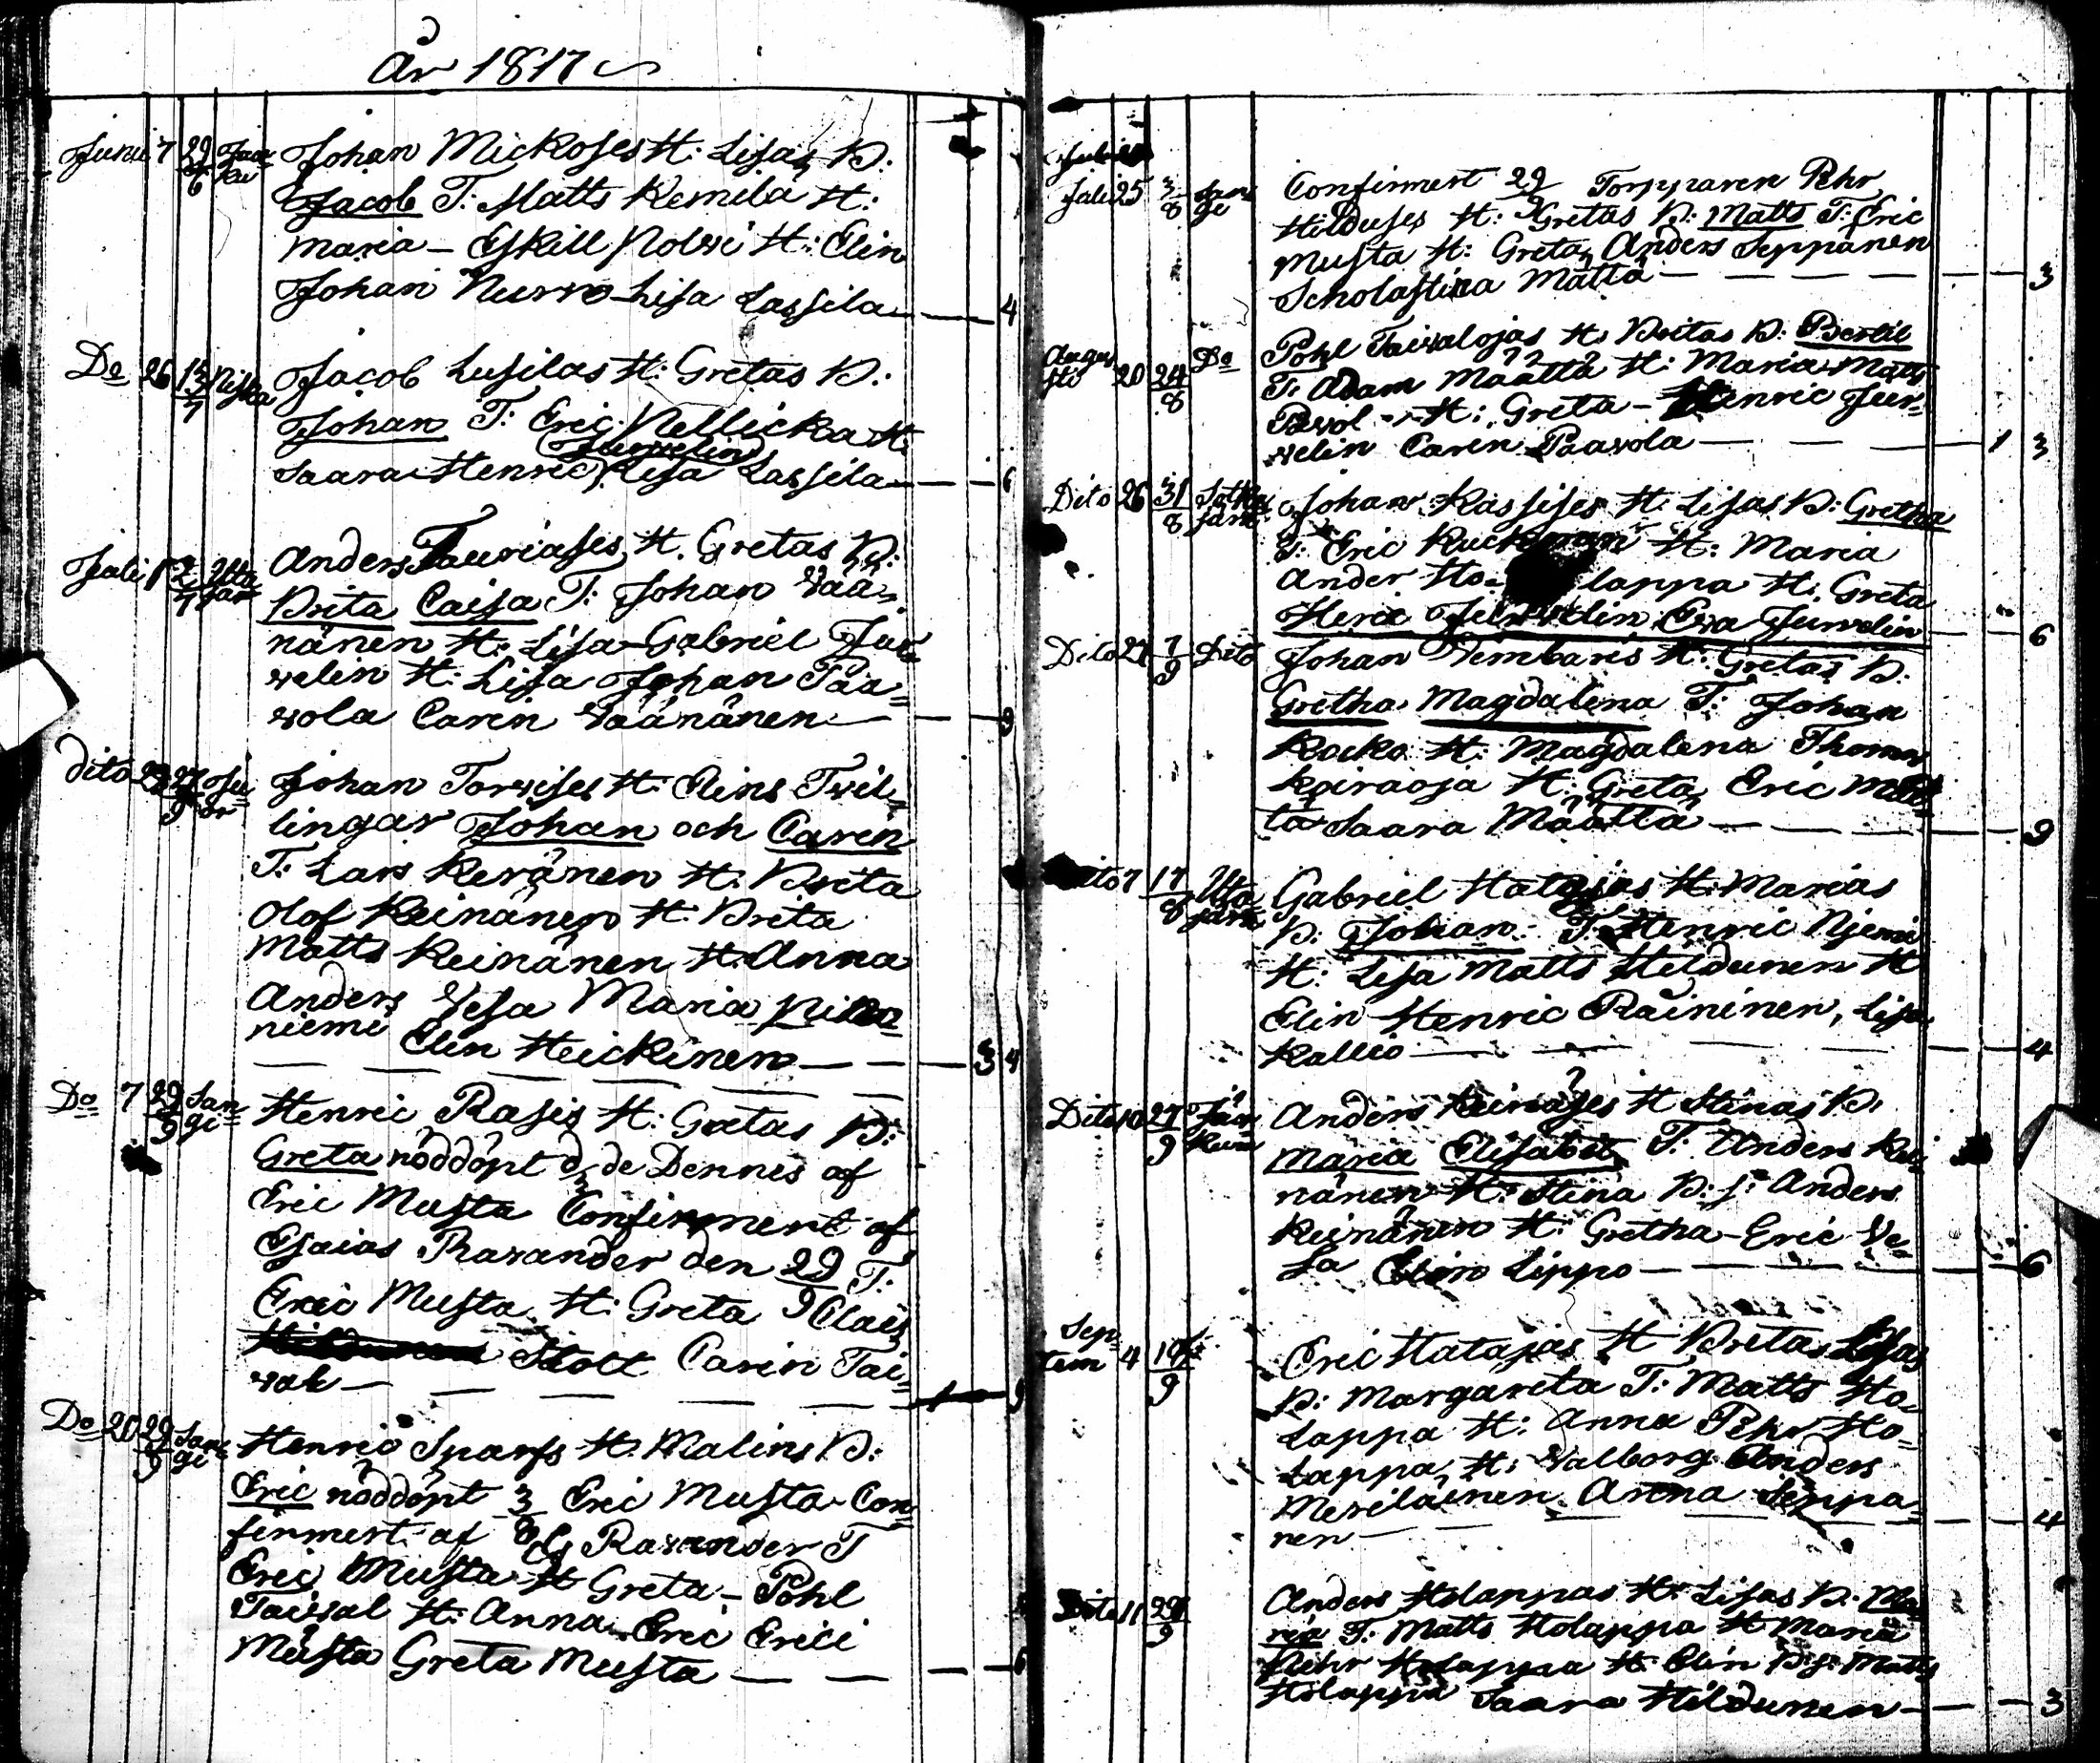 År 1817
Junii 7 29/6 Johan Mickoses H: Lisas B:
Jacob T: Matts Kemilä H:
Maria – Eskill Polvi H: Elin
Johan Nurro Lisa Lassila — 4
Do 26 13/7 Niska Jacob Lusilas H: Gretas B:
Johan T: Eric Pellicka H:
Juvelin
Saara Henric Lisa Lassila — 6
Juli 1 2/7 Utta jär Anders Tauriases H. Gretas B:
Brita Caisa T: Johan Vää-
nänen H: Lisa – Gabriel Ju-
velin H: Lisa Johan Paa-
vola Carin Väänänen — 9
dito Johan Torvises H: Elins Tvil-
lingar Johan och Caren
T: Lars Keränen H: Brita
Olof Keinänen H: Brita
Matts Keinänen H: Anna
Anders Vesa Maria
niemi Elin Heickinen — 3 4
Do 7 29/9 San gi Henric Rasis H: Gretas B:
Greta nöddöpt d. de Dennes af
Eric Musta Confirmert af
Esaias Ravander den 29/9 T:
Eric Musta H: Greta Claes
Stolt Carin Tai-
val — 1 9
Do 20 29/9 San gi Henric Sparfs H: Malins B:
Eric nöddöpt 3 Eric Musta Con-
firmert af Es Ravander T
Eric Musta H Greta – Pohl
Taival H: Anna Eric Erici
Musta Greta Musta — 6
Juli 25 3/8 San gi Confirmert 29/9 Torpparen Pehr
Hilduses H: Gretas B: Matts T: Eric
Musta H: Greta Anders Seppänen
Scholastica Mättä — 3
Augu sti 20 24/8 Do Pohl Taivalojas H: Britas B: Bertil
T: Adam Määttä H: Maria Matts
Pavol H: Greta – Henric Jur-
velin Caren Paavola — 1 3
Dito 26 31/8 Johan Kassises H: Lisas B: Gretha
T: Eric H: Maria
Ander Ho lappa H: Greta
Heric Jurvelin Eva Jurvelin — 6
Dito 27 7/9 Dito Johan Pimbaris H: Gretas B.
Gretha Magdalena T: Johan
Kocko H: Magdalena Thomas
Kairaoja H: Greta Eric Mät-
tä Saara Määttä — 9
Dito 7 17/8 Utta järvi Gabriel Hatajas H: Marias
B: Johan T: Henric Njemi
H: Lisa Matts Hildunen H
Elin Henric Raininen, Lisa
Kallio — 4
Dito 10 27/9 Anders Keinäses H Stinas B:
Maria Elisabet T: Anders Kei-
nänen H: Stina B: s: Anders
Keinänen H: Gretha – Eric Ve-
sa Elin Lippo — 6
Sep tem 4 Eric Hatajas H Britas Lisas
B: Margareta T: Matts Ho-
lappa H: Anna Pehr Ho-
lappa H: Valborg Anders
Meriläinen Anna Seppä-
nen — 4
Dito 11 29/9 Anders Holappas H: Lisas B: Ma-
ria T: Matts Holappa H Maria
Pehr Holappa H: Elin B: s: Matts
Holappa Saara Hildunen — 3